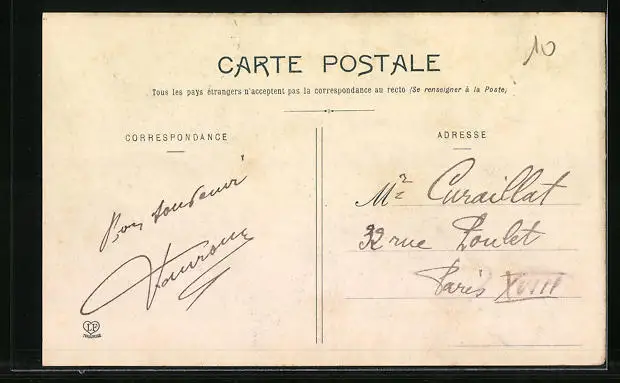 10
CARTE POSTALE
Tous les pays étrangers n'acceptent pas la correspondance au recto (Se renseigner à la Poste)
CORRESPONDANCE
ADRESSE
Bon souvenir
Mr Curaillat
32 rue Poulet
Paris XVIII